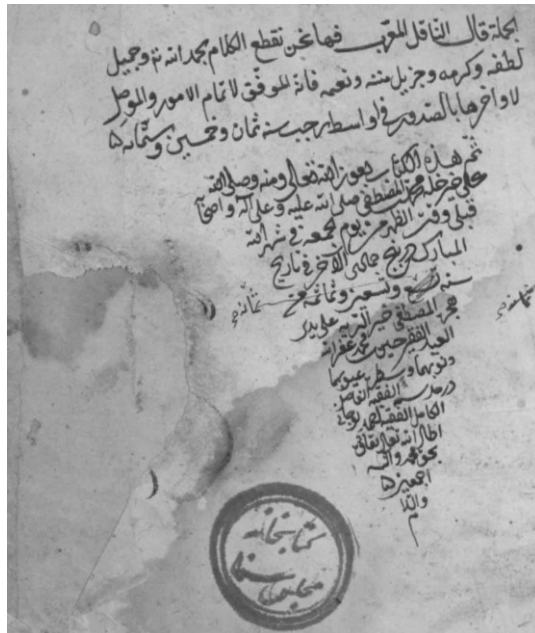 بجملة قال الناقل المعرّب فها نحن نقطع الكلام بحمد الله ومنّه وجميل
لطفه وكرمه وجزيل مننه ونعمه فانه الموفق لاتمام الامور والموصل
لاواخرها بالصدور في اواسط رجب سنه ثمان وخمسين وستمائه
تم هذه الكتاب بعون الله تعالى ومنه وصلى الله
على خير خلقه محمد المصطفى صلى الله عليه وعلى آله واصحابه
قبلي وقت الظهر من يوم الجمعه في شهر الله
المبارك جمادى الآخر في تاريخ
سنه تسع وتسعين وثمانمائه
هجر المصطفى خير البريه على يد
العبد الفقير حسين محمد غفر الله
ذنوبهما وستر عيوبهما
در مدرسه الفقيه الفاضل
الكامل الفقيه
اطال الله تعالى بقائه
بحق محمد وآله
اجمعين
والسلام
ثمانمائه
ثمانمائه
كتابخانه
مجلس سنا